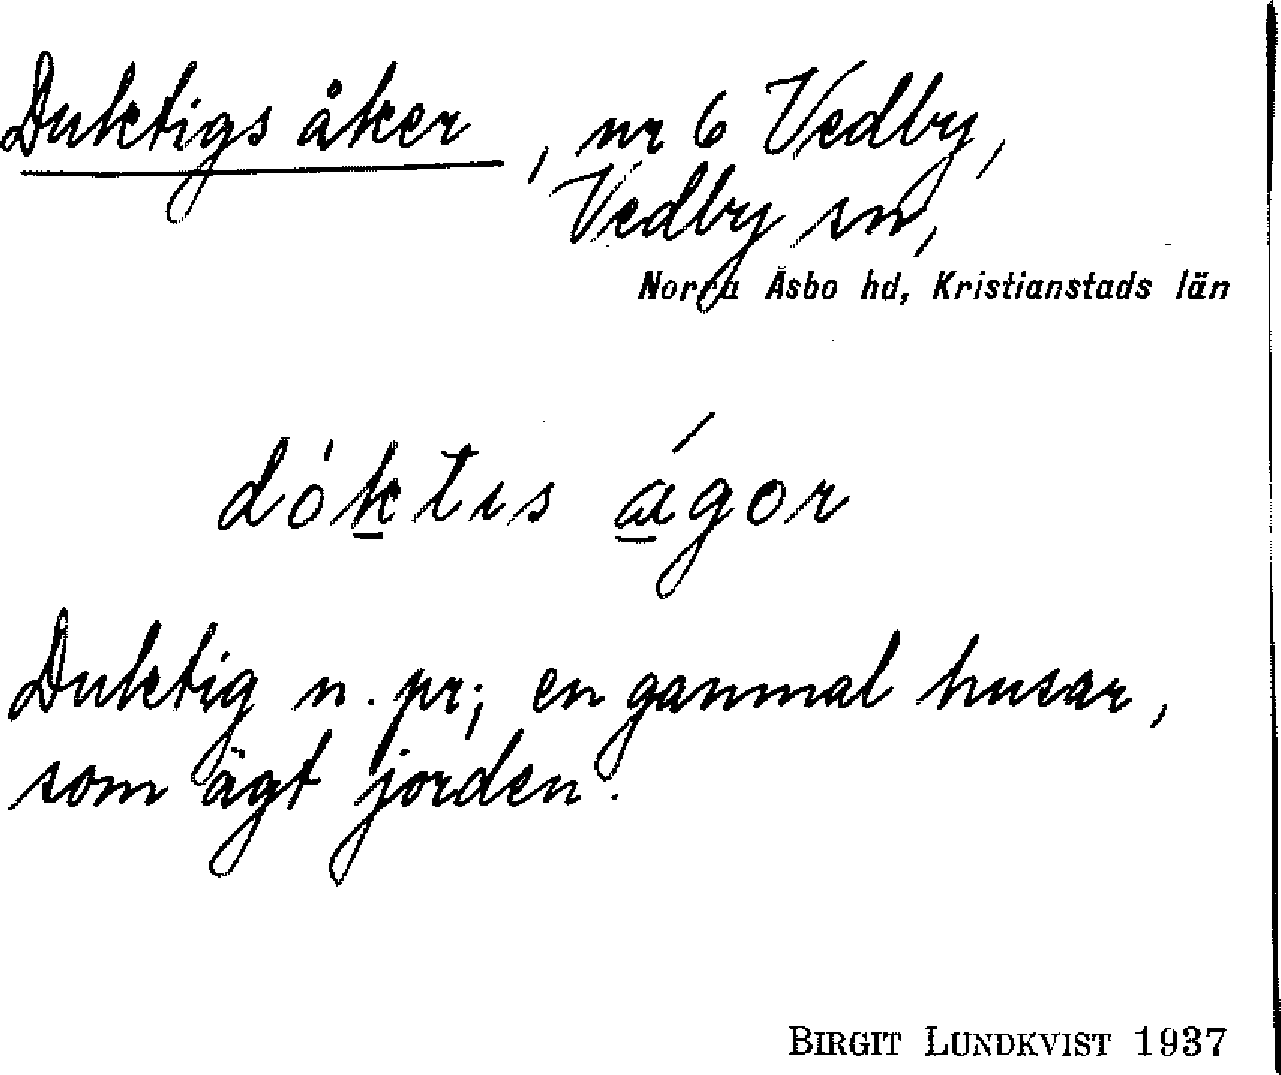 Duktigs åker, nr 6 Vedby,
Vedby sn,
Norra Åsbo hd, Kristianstads län
dóktıs ágor
Duktig n. pr; en gammal husar,
som ägt jorden.
BIRGIT LUNDKVIST 1937